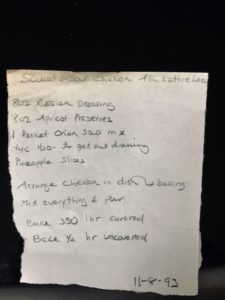 Chicken Ala Kathie Lee
8oz Russian Dressing
8oz Apricot Preserves
1 Packet Onion Soup mix
1/4c H2O - to get out dressing
Pineapple Slices
Arrange Chicken in dish baking
Mix everything & pour
Bake 350 1hr covered
Bake 1/2 hr uncovered
11-8-93